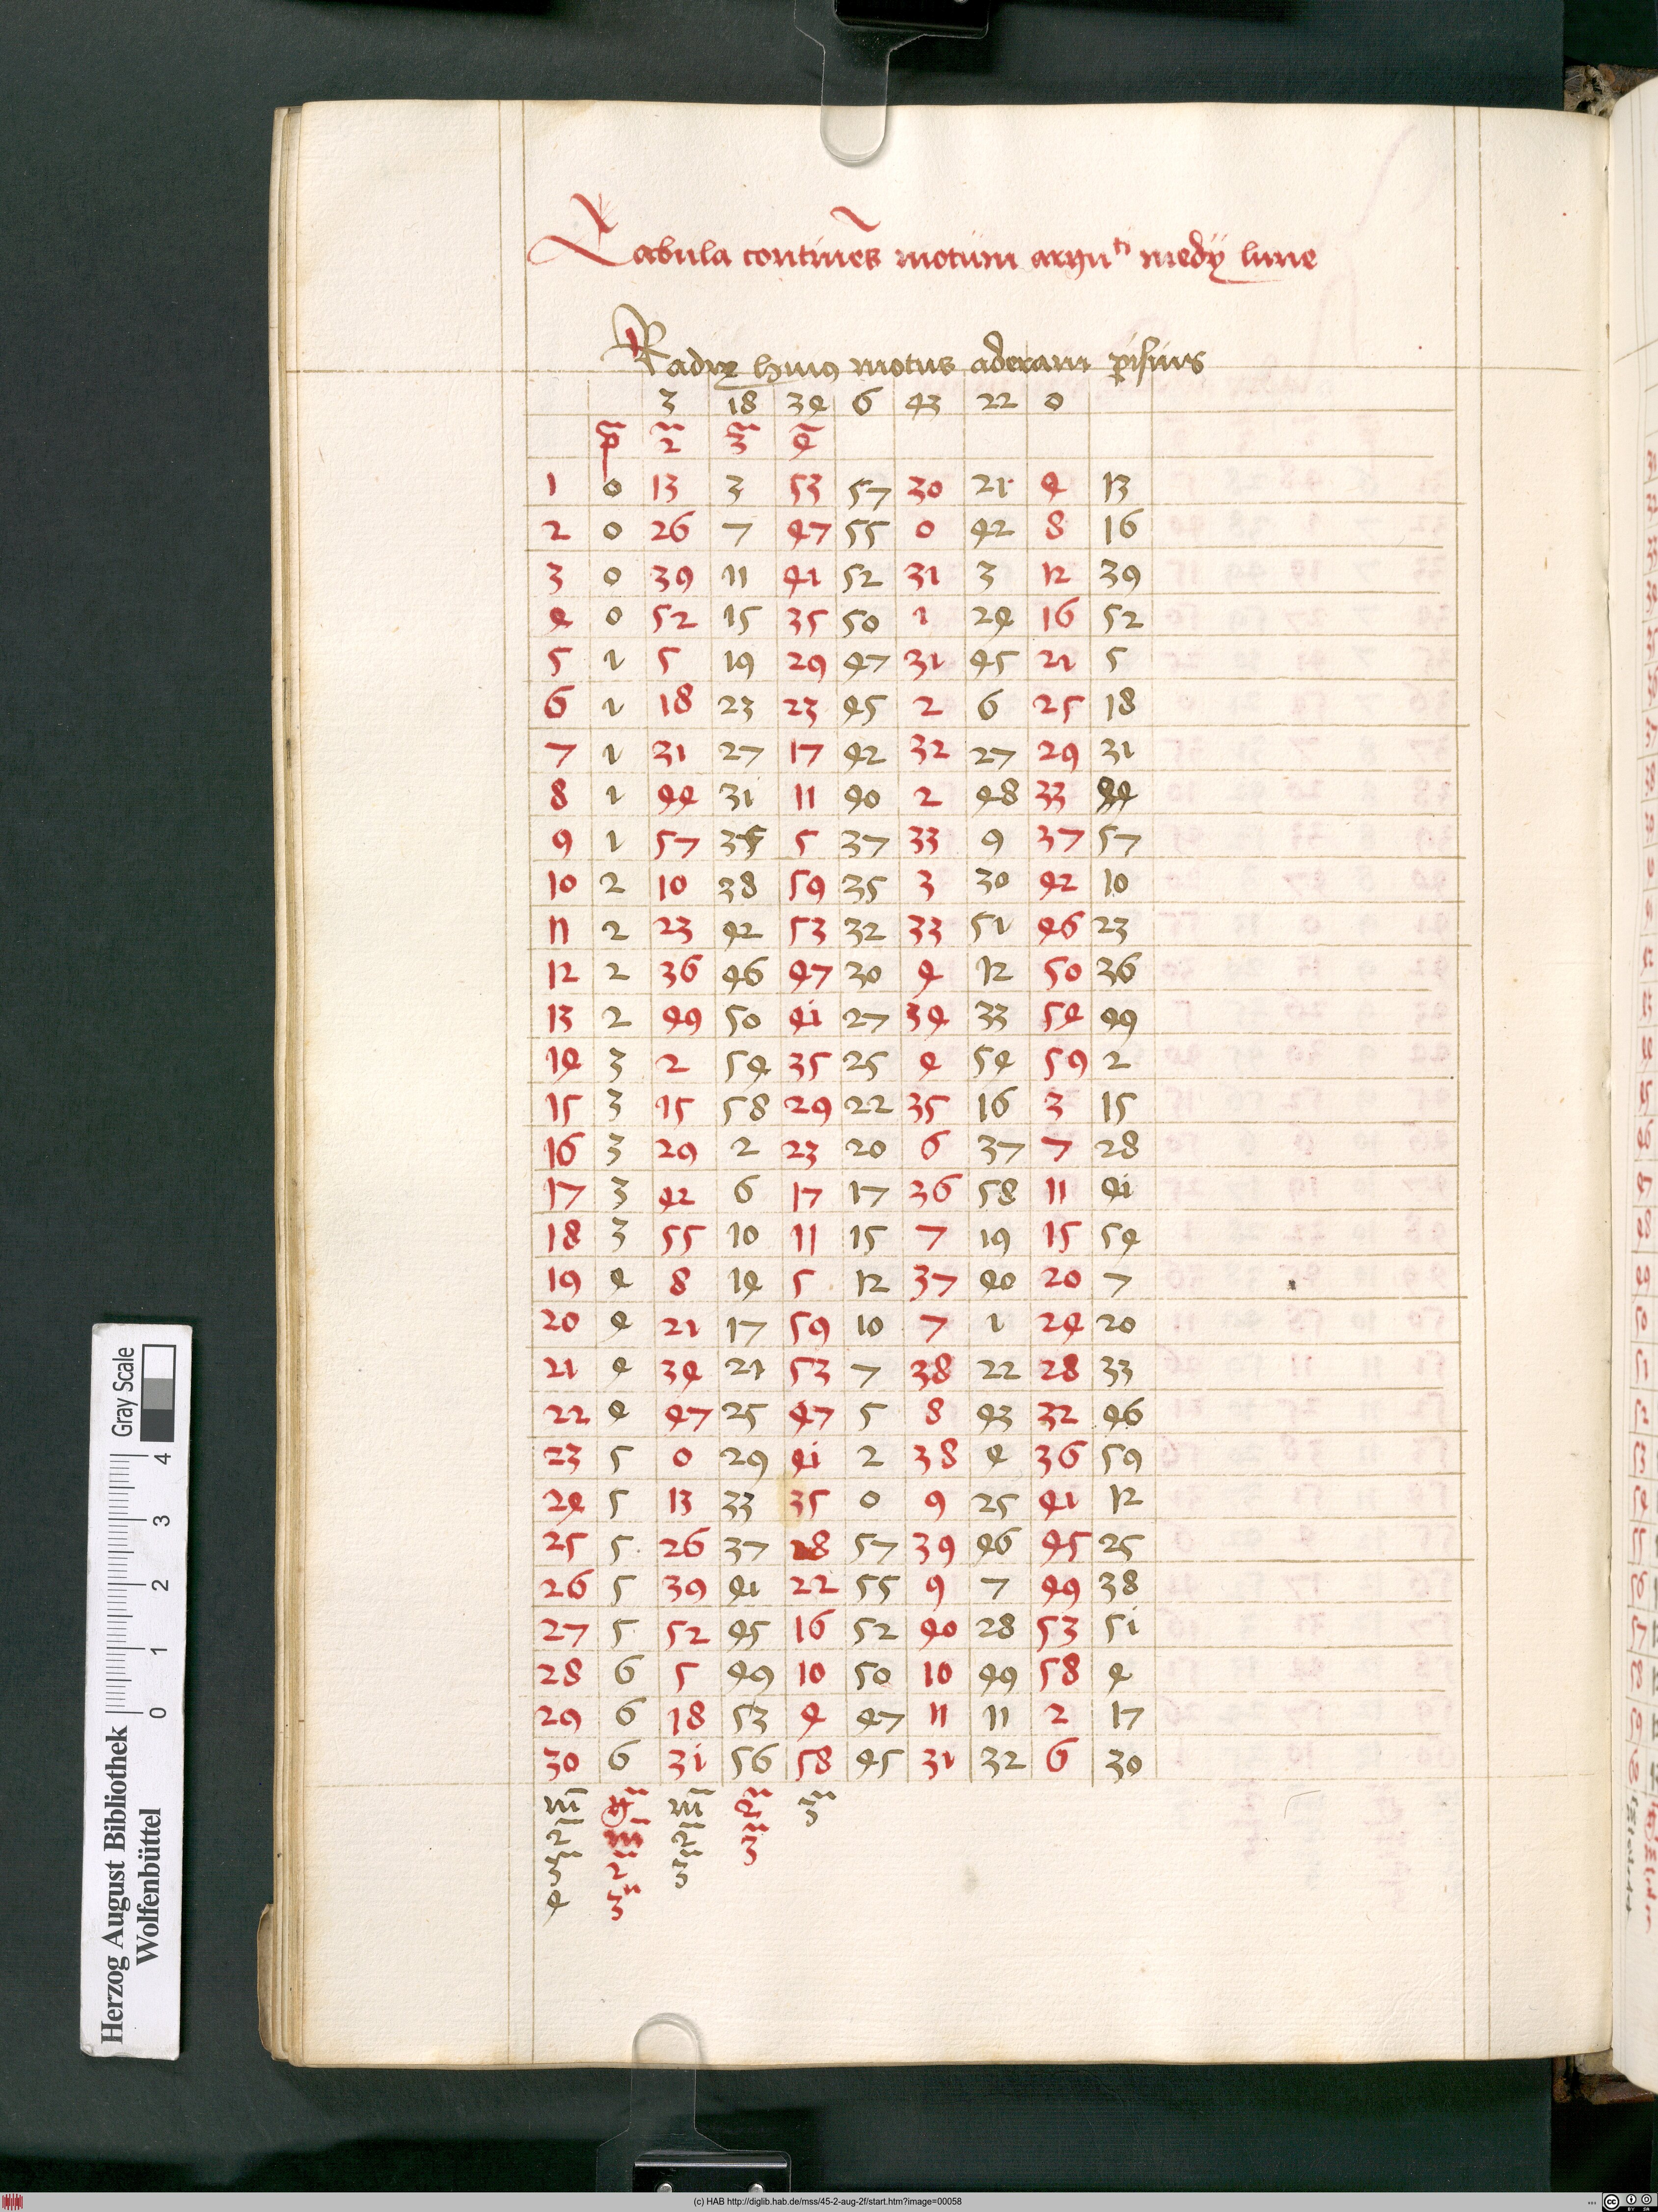 Tabula continēs motum argu^ti medij lune
Radix huiꝯ motus ad eram
3 18 34 6 43 22 0
p 2 3 4
1 0 13 3 53 57 30 21 4 13
2 0 26 7 47 55 0 42 8 16
3 0 39 11 41 52 31 3 12 39
4 0 52 15 35 50 1 24 16 52
5 1 5 19 29 47 31 45 21 5
6 1 18 23 23 45 2 6 25 18
7 1 31 27 17 42 32 27 29 31
8 1 44 31 11 40 2 48 33 44
9 1 57 35 5 37 33 9 37 57
10 2 10 38 59 35 3 30 42 10
11 2 23 42 53 32 33 51 46 23
12 2 36 46 47 30 4 12 50 36
13 2 49 50 41 27 34 33 54 49
14 3 2 54 35 25 4 54 59 2
15 3 15 58 29 22 35 16 3 15
16 3 29 2 23 20 6 37 7 28
17 3 42 6 17 17 36 58 11 41
18 3 55 10 11 15 7 19 15 54
19 4 8 14 5 12 37 40 20 7
20 4 21 17 59 10 7 1 24 20
21 4 34 21 53 7 38 22 28 33
22 4 47 25 47 5 8 43 32 46
23 5 0 29 41 2 38 4 36 59
24 5 13 33 35 0 9 25 41 12
25 5 26 37 28 57 39 46 45 25
26 5 39 41 22 55 9 7 49 38
27 5 52 45 16 52 40 28 53 51
28 6 5 49 10 50 10 49 58 4
29 6 18 53 4 47 11 11 2 17
30 6 31 56 58 45 31 32 6 30
Herzog August Bibliothek
Wolfenbüttel
0 1 2 3 4
Gray Scale
(c) HAB http://diglib.hab.de/mss/45-2-aug-2f/start.htm?image=00058